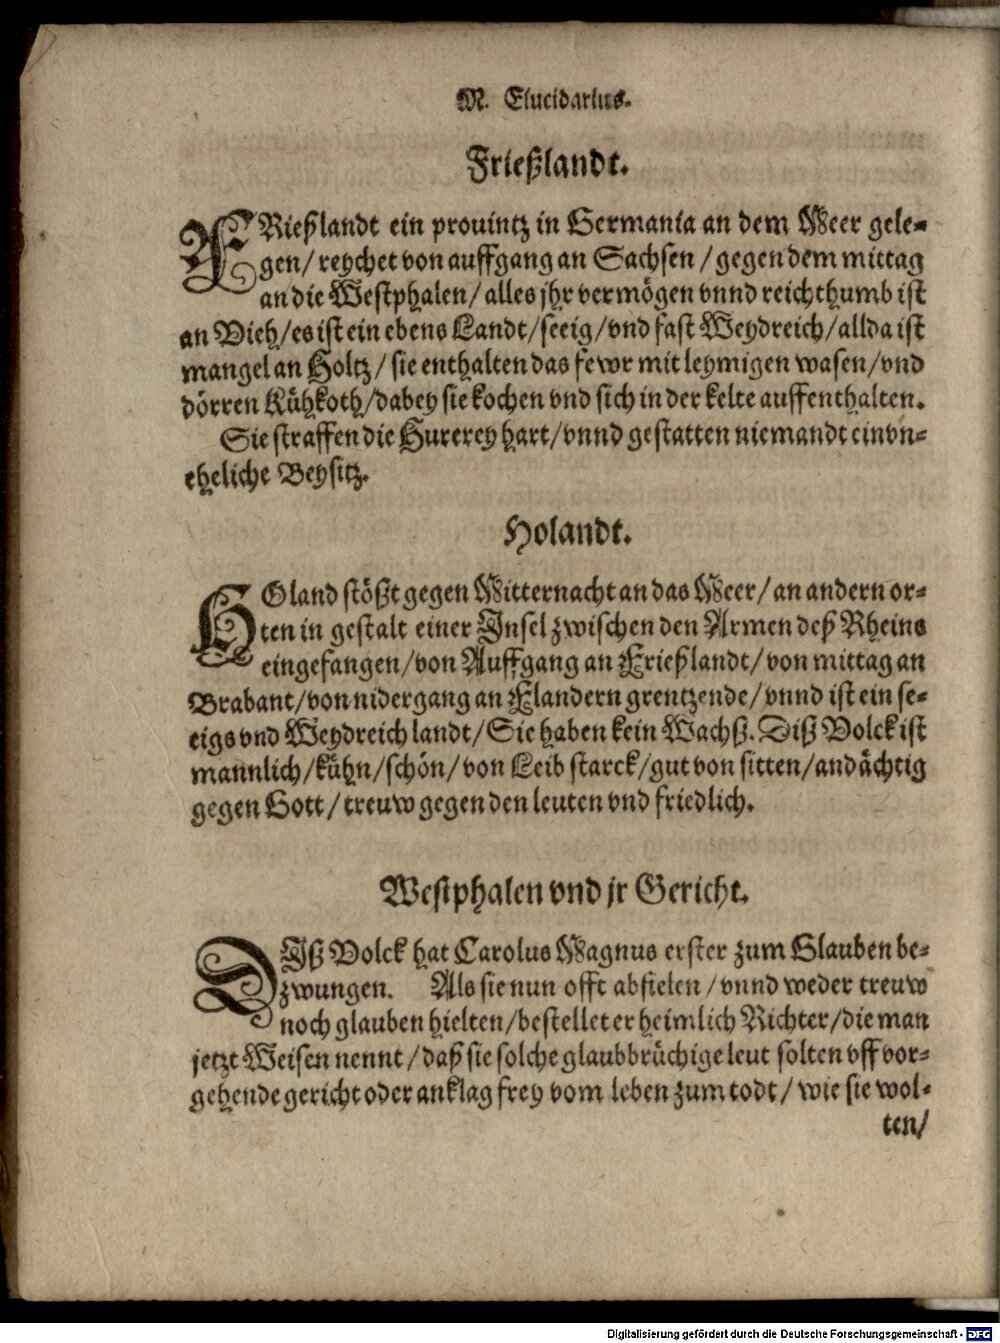 M. Elucidarius.
Frießlandt.
FRießlandt ein prouintz in Germania an dem Meer gele-
gen/ reychet von auffgang an Sachsen / gegen dem mittag
an die Westphalen/ alles jhr vermögen vnnd reichthumb ist
an Vieh/ es ist ein ebens Landt/ seeig/ vnd fast Weydreich/ allda ist
mangel an Holtz/ sie enthalten das fewr mit leymigen wasen/ vnd
dörren Kühkoth/ dabey sie kochen vnd sich in der kelte auffenthalten.
Sie straffen die Hurerey hart/ vnnd gestatten niemandt ein vn-
eheliche Beysitz.
Holandt.
HOland stößt gegen Mitternacht an das Meer/ an andern or-
ten in gestalt einer Insel zwischen den Armen deß Rheins
eingefangen/ von Auffgang an Frießlandt/ von mittag an
Brabant/ von nidergang an Flandern grentzende/ vnnd ist ein se-
eigs vnd Weydreich landt/ Sie haben kein Wachß. Diß Volck ist
mannlich/ kühn/ schön/ von Leib starck/ gut von sitten/ andächtig
gegen Gott/ treuw gegen den leuten vnd friedlich.
Westphalen vnd jr Gericht.
DIß Volck hat Carolus Magnus erster zum Glauben be-
zwungen. Als sie nun offt abfielen / vnnd weder treuw
noch glauben hielten/ bestellet er heimlich Richter/ die man
jetzt Weisen nennt/ daß sie solche glaubbrüchige leut solten vff vor-
gehende gericht oder anklag frey vom leben zum todt/ wie sie wol-
ten/
Digitalisierung gefördert durch die Deutsche Forschungsgemeinschaft - DFG